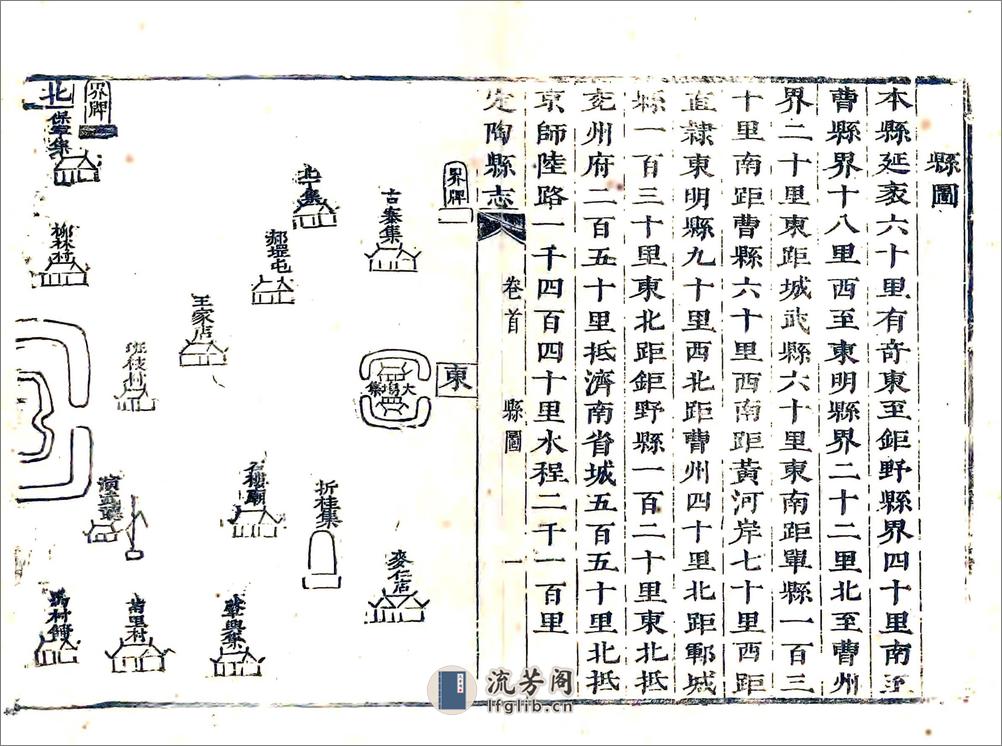 縣圖
本縣延袤六十里有奇東至鉅野縣界四十里南至
曹縣界十八里西至東明縣界二十二里北至曹州
界二十里東距城武縣六十里東南距單縣一百三
十里南距曹縣六十里西南距黃河岸七十里西距
直隸東明縣九十里西北距曹州四十里北距鄆城
縣一百三十里東北距鉅野縣一百二十里東北抵
兖州府二百五十里抵濟南省城五百五十里北抵
京師陸路一千四百四十里水程二千一百里
定陶縣志
卷首
縣圖
一
界牌
東
古秦集
大塲集
折桂集
麥仁店
郝堤屯
王家店
班枝村
界牌
北
柳林村
流芳阁
lfglib.cn